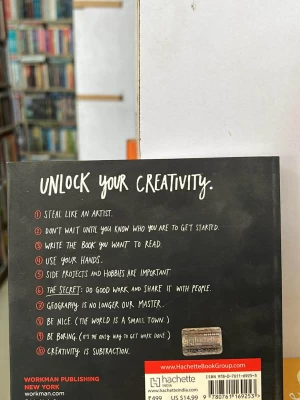 UNLOCK YOUR CREATIVITY.
1 STEAL LIKE AN ARTIST.
2 DON'T WAIT UNTIL YOU KNOW WHO YOU ARE TO GET STARTED.
3 WRITE THE BOOK YOU WANT TO READ.
4 USE YOUR HANDS.
5 SIDE PROJECTS AND HOBBIES ARE IMPORTANT
6 THE SECRET: DO GOOD WORK AND SHARE IT WITH PEOPLE.
7 GEOGRAPHY IS NO LONGER OUR MASTER.
8 BE NICE. (THE WORLD IS A SMALL TOWN.)
9 BE BORING. (IT'S THE ONLY WAY TO GET WORK DONE.)
10 CREATIVITY IS SUBTRACTION.
www.HachetteBookGroup.com
WORKMAN PUBLISHING
NEW YORK
workman.com
hachette
INDIA
hachetteindia.com
₹499 US $14.99
ISBN 978-0-7611-6925-3
9 780761 169253